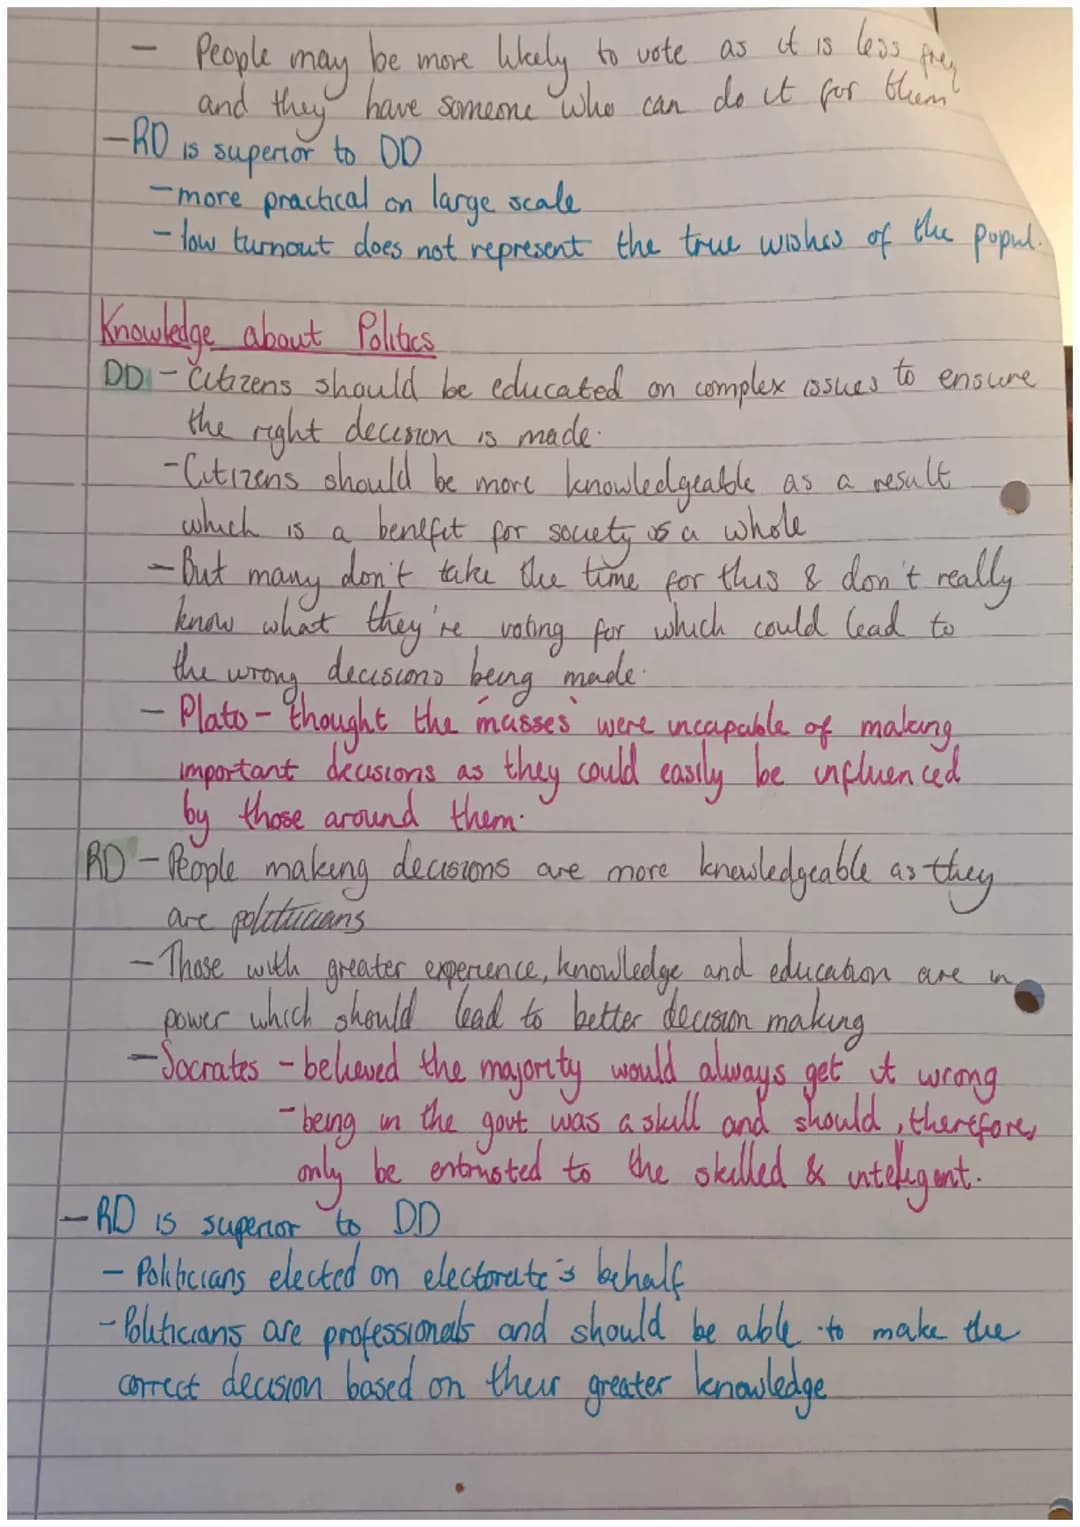 - People may be more likely to vote as it is less
and they have someone who can do it for them
- RD is superior to DD
- more practical on large scale
- low turnout does not represent the true wishes of the popul.
Knowledge about Politics
DD - Citizens should be educated on complex issues to ensure
the right decision is made.
- Citizens should be more knowledgeable as a result
which is a benefit for society as a whole
- But many don't take the time for this & don't really
know what they're voting for which could lead to
the wrong decisions being made.
- Plato - thought the 'masses' were incapable of making
important decisions as they could easily be influenced
by those around them.
RD - People making decisions are more knowledgeable as they
are politicians
- Those with greater experience, knowledge and education are in
power which should lead to better decision making
- Socrates - believed the majority would always get it wrong
- being in the govt was a skill and should, therefore,
only be entrusted to the skilled & intelligent.
- RD is superior to DD
- Politicians elected on electorate's behalf
- Politicians are professionals and should be able to make the
correct decision based on their greater knowledge